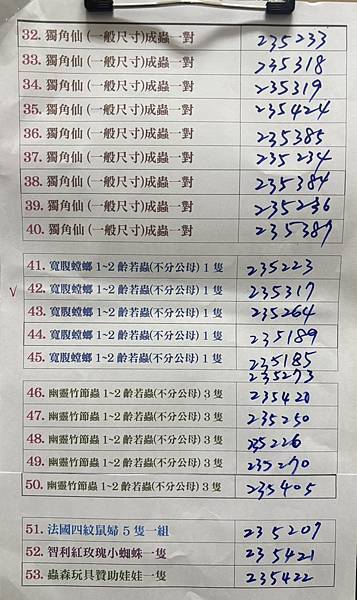 32. 獨角仙 (一般尺寸)成蟲一對 235233
33. 獨角仙 (一般尺寸)成蟲一對 235318
34. 獨角仙 (一般尺寸)成蟲一對 235319
35. 獨角仙 (一般尺寸)成蟲一對 235424
36. 獨角仙 (一般尺寸)成蟲一對 235385
37. 獨角仙 (一般尺寸)成蟲一對 235234
38. 獨角仙 (一般尺寸)成蟲一對 235384
39. 獨角仙 (一般尺寸)成蟲一對 235236
40. 獨角仙 (一般尺寸)成蟲一對 235387
41. 寬腹螳螂 1~2 齡若蟲(不分公母) 1 隻 235223
√ 42. 寬腹螳螂 1~2 齡若蟲(不分公母) 1 隻 235317
43. 寬腹螳螂 1~2 齡若蟲(不分公母) 1 隻 235264
44. 寬腹螳螂 1~2 齡若蟲(不分公母) 1 隻 235189
45. 寬腹螳螂 1~2 齡若蟲(不分公母) 1 隻 235185
235273
46. 幽靈竹節蟲 1~2 齡若蟲(不分公母) 3 隻 235420
47. 幽靈竹節蟲 1~2 齡若蟲(不分公母) 3 隻 235250
48. 幽靈竹節蟲 1~2 齡若蟲(不分公母) 3 隻 235226
49. 幽靈竹節蟲 1~2 齡若蟲(不分公母) 3 隻 235270
50. 幽靈竹節蟲 1~2 齡若蟲(不分公母) 3 隻 235405
51. 法國四紋鼠婦 5 隻一組 235207
52. 智利紅玫瑰小蜘蛛一隻 235421
53. 蟲森玩具贊助娃娃一隻 235422